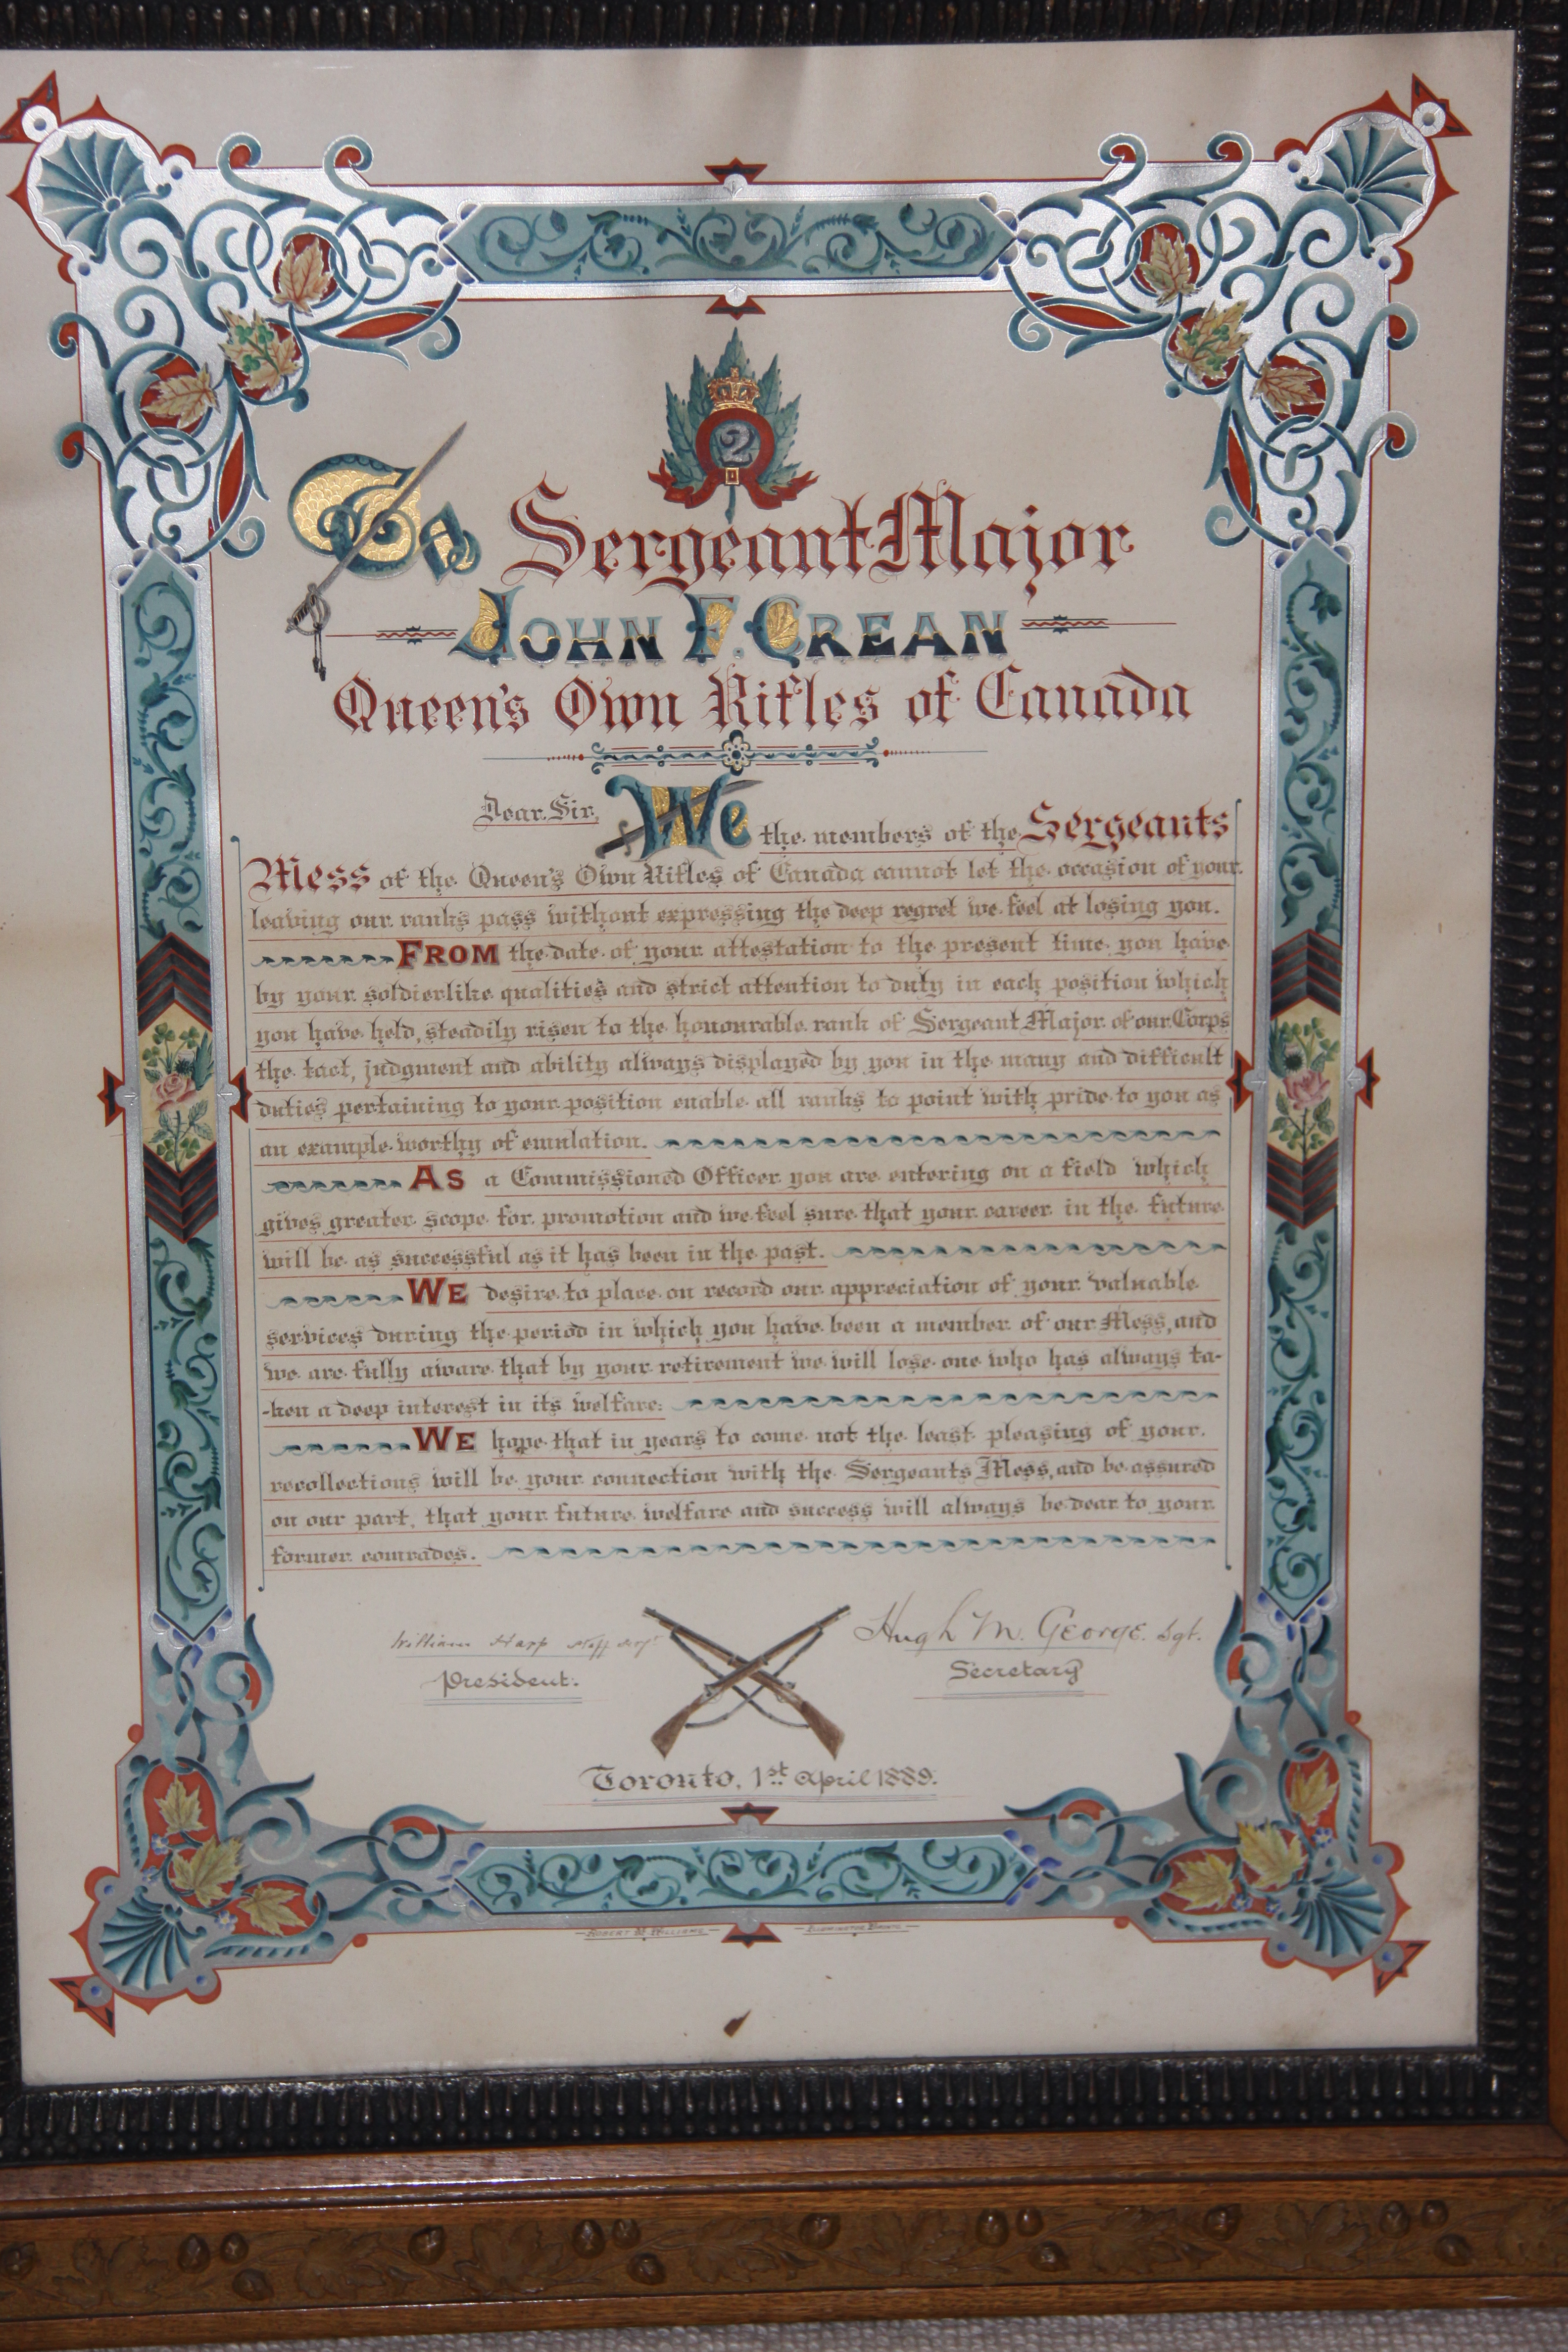 2
To Sergeant Major
JOHN F. CREAN
Queen's Own Rifles of Canada
Dear Sir, We the members of the Sergeants
Mess of the Queen's Own Rifles of Canada cannot let the occasion of your
leaving our ranks pass without expressing the deep regret we feel at losing you.
FROM the date of your attestation to the present time you have
by your soldierlike qualities and strict attention to duty in each position which
you have held, steadily risen to the honourable rank of Sergeant Major of our Corps
the tact, judgment and ability always displayed by you in the many and difficult
duties pertaining to your position enable all ranks to point with pride to you as
an example worthy of emulation.
AS a Commissioned Officer you are entering on a field which
gives greater scope for promotion and we feel sure that your career in the future
will be as successful as it has been in the past.
WE desire to place on record our appreciation of your valuable
services during the period in which you have been a member of our Mess, and
we are fully aware that by your retirement we will lose one who has always ta-
-ken a deep interest in its welfare:
WE hope that in years to come not the least pleasing of your
recollections will be your connection with the Sergeants Mess, and be assured
on our part, that your future welfare and success will always be dear to your
former comrades.
William Harp Staff Sergt
Hugh M. George. Sgt.
President.
Secretary
Toronto, 1st April 1889.
ROBERT W. WILLIAMS ILLUMINATOR